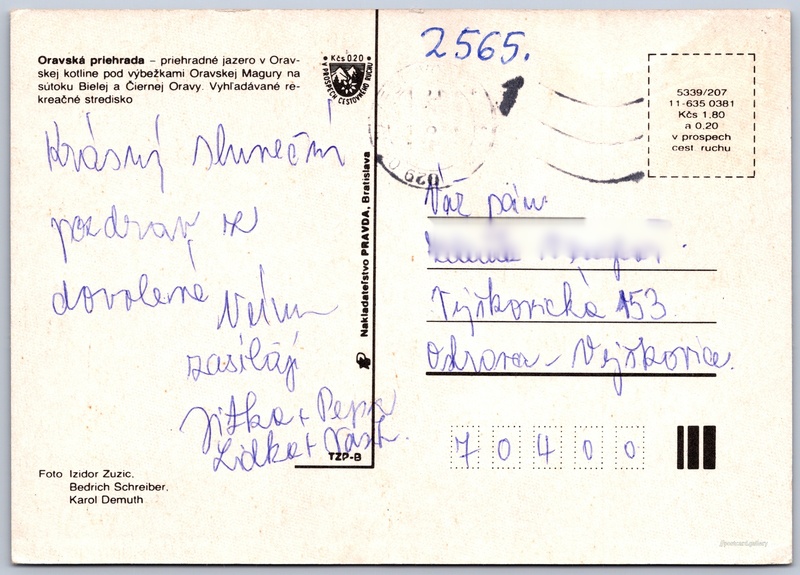 Oravská priehrada – priehradné jazero v Orav-
skej kotline pod výbežkami Oravskej Magury na
sútoku Bielej a Čiernej Oravy. Vyhľadávané re-
kreačné stredisko
Kčs 0,20
V PROSPECH CESTOVNÉHO RUCHU
Krásný sluneční
pozdrav ze
dovolené Vám
zasílají
Jitka + Pepa
Lidka +
Foto Izidor Zuzic,
Bedrich Schreiber,
Karol Demuth
Nakladateľstvo PRAVDA, Bratislava
TZP-B
2565.
5339/207
11-635 0381
Kčs 1,80
a 0,20
v prospech
cest. ruchu
Váž. pán
Výškovická 153
Ostrava – Výškovice.
70400